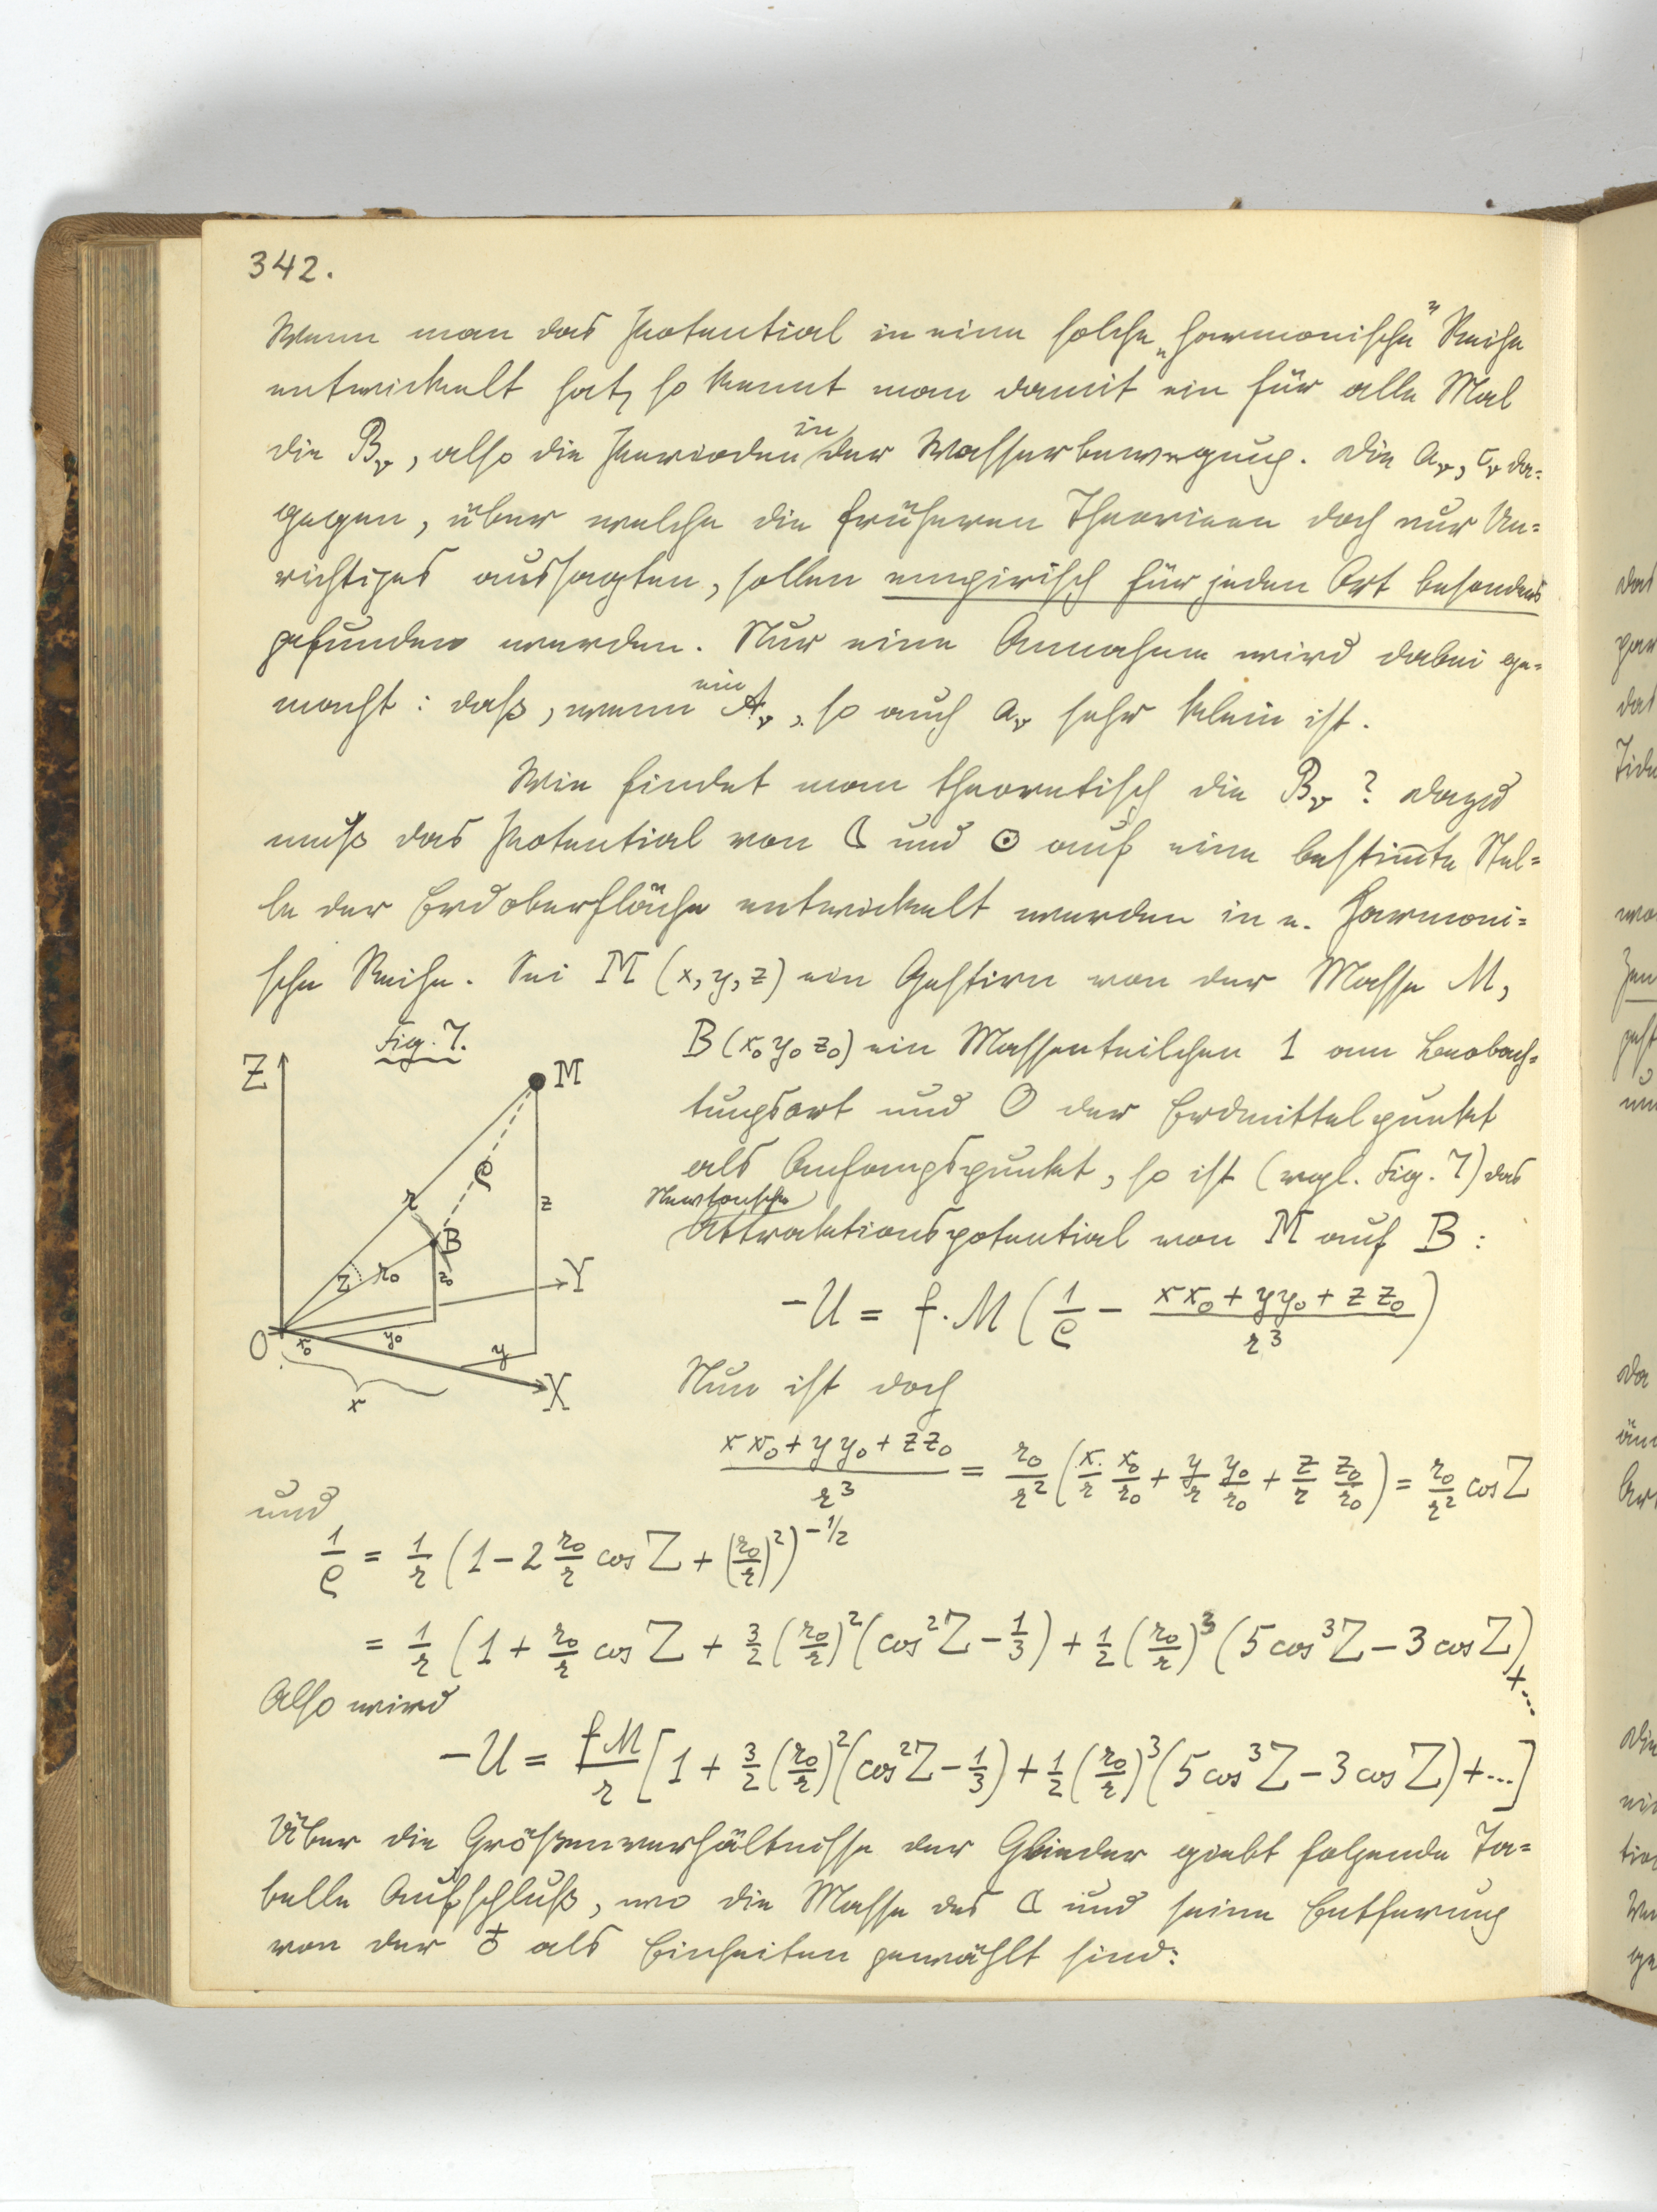 342.
Wenn man das Potential in eine solche „harmonische" Reihe
entwickelt hat, so kennt man damit ein für alle Mal
die Bᵥ, also die Perioden in der Wasserbewegung. Die aᵥ, cᵥ da=
gegen, über welche die früheren Theorieen doch nur Un=
richtiges aussagten, sollen empirisch für jeden Ort besonders
gefunden werden. Nur eine Annahme wird dabei ge=
macht: daß, wenn ein Aᵥ, so auch aᵥ sehr klein ist.
Wie findet man theoretisch die Bᵥ? Dazu
muß das Potential von ☾ und ☉ auf eine bestim̄te Stel=
le der Erdoberfläche entwickelt werden in e. harmoni=
sche Reihe. Sei M (x, y, z) ein Gestirn von der Masse M,
Fig. 7.
Z
M
ρ
r
z
B
Z
r₀
z₀
Y
O
x₀
y₀
y
X
x
B (x₀ y₀ z₀) ein Massenteilchen 1 am Beobach=
tungsort und O der Erdmittelpunkt
als Anfangspunkt, so ist (vgl. Fig. 7) das
Newtonsche
Attraktionspotential von M auf B:
-U = f·M (1/ρ - (xx₀ + yy₀ + zz₀)/r³)
Nun ist doch
(xx₀ + yy₀ + zz₀)/r³ = r₀/r² (x/r x₀/r₀ + y/r y₀/r₀ + z/r z₀/r₀) = r₀/r² cos Z
und
1/ρ = 1/r (1 - 2 r₀/r cos Z + (r₀/r)²)^-1/2
= 1/r (1 + r₀/r cos Z + 3/2 (r₀/r)² (cos²Z - 1/3) + 1/2 (r₀/r)³ (5 cos³Z - 3 cos Z) + ...
Also wird
-U = fM/r [1 + 3/2 (r₀/r)² (cos²Z - 1/3) + 1/2 (r₀/r)³ (5 cos³Z - 3 cos Z) + ...]
Über die Größenverhältnisse der Glieder giebt folgende Ta=
belle Aufschluß, wo die Masse des ☾ und seine Entfernung
von der ♁ als Einheiten gewählt sind: